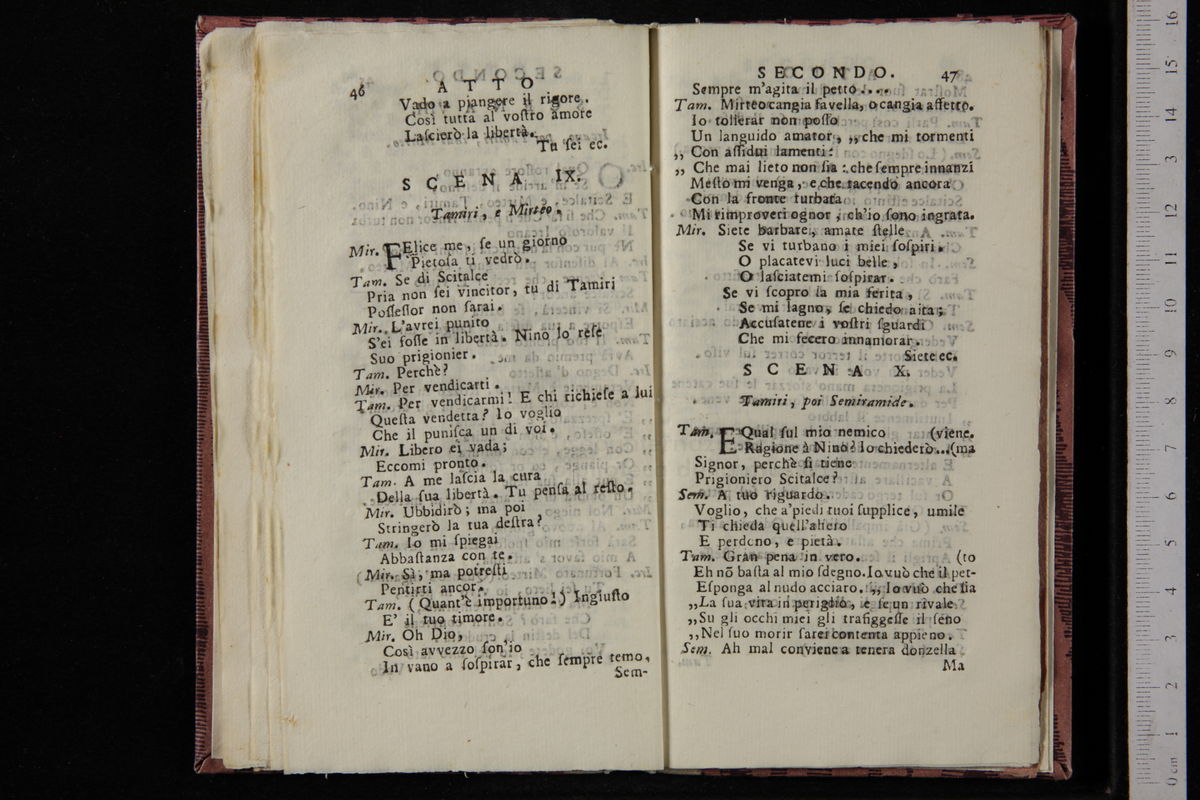 46
ATTO
Vado a piangere il rigore.
Così tutta al voſtro amore
Laſcierò la libertà.
Tu ſei ec.
SCENA IX.
Tamiri, e Mirteo.
Mir. FElice me, ſe un giorno
Pietoſa ti vedrò.
Tam. Se di Scitalce
Pria non ſei vincitor, tu di Tamiri
Poſſeſſor non ſarai.
Mir. L'avrei punito
S'ei foſſe in libertà. Nino lo reſe
Suo prigionier.
Tam. Perchè?
Mir. Per vendicarti.
Tam. Per vendicarmi! E chi richieſe a lui
Queſta vendetta? Io voglio
Che il puniſca un di voi.
Mir. Libero ei vada;
Eccomi pronto.
Tam. A me laſcia la cura
Della ſua libertà. Tu penſa al reſto.
Mir. Ubbidirò; ma poi
Stringerò la tua deſtra?
Tam. Io mi ſpiegai
Abbaſtanza con te.
Mir. Sì, ma potreſti
Pentirti ancor.
Tam. (Quant'è importuno!) Ingiuſto
E' il tuo timore.
Mir. Oh Dio,
Così avvezzo ſon'io
In vano a ſoſpirar, che ſempre temo,
Sem-
SECONDO. 47
Sempre m'agita il petto....
Tam. Mirteo cangia favella, o cangia affetto.
Io tollerar non poſſo
Un languido amator, ,,che mi tormenti
,, Con aſſidui lamenti:
,, Che mai lieto non ſia: che ſempre innanzi
Meſto mi venga, e che tacendo ancora
Con la fronte turbata
Mi rimproveri ognor, ch'io ſono ingrata.
Mir. Siete barbare, amate ſtelle
Se vi turbano i miei ſoſpiri.
O placatevi luci belle,
O laſciatemi ſoſpirar.
Se vi ſcopro la mia ferita,
Se mi lagno, ſe chiedo aita;
Accuſatene i voſtri ſguardi
Che mi fecero innamorar.
Siete ec.
SCENA X.
Tamiri, poi Semiramide.
Tam. E Qual ſul mio nemico (viene.
Ragione à Nino? Io chiederò...(ma
Signor, perchè ſi tiene
Prigioniero Scitalce?
Sem. A tuo riguardo.
Voglio, che a'piedi tuoi ſupplice, umile
Ti chieda quell'altero
E perdono, e pietà.
Tam. Gran pena in vero. (to
Eh nō baſta al mio ſdegno. Io vuò che il pet-
Eſponga al nudo acciaro. ,, Io vuò che ſia
,,La ſua vita in periglio, e ſe un rivale
,,Su gli occhi miei gli trafiggeſſe il ſeno
,,Nel ſuo morir ſarei contenta appieno.
Sem. Ah mal conviene a tenera donzella
Ma
0 cm 1 2 3 4 5 6 7 8 9 10 11 12 13 14 15 16